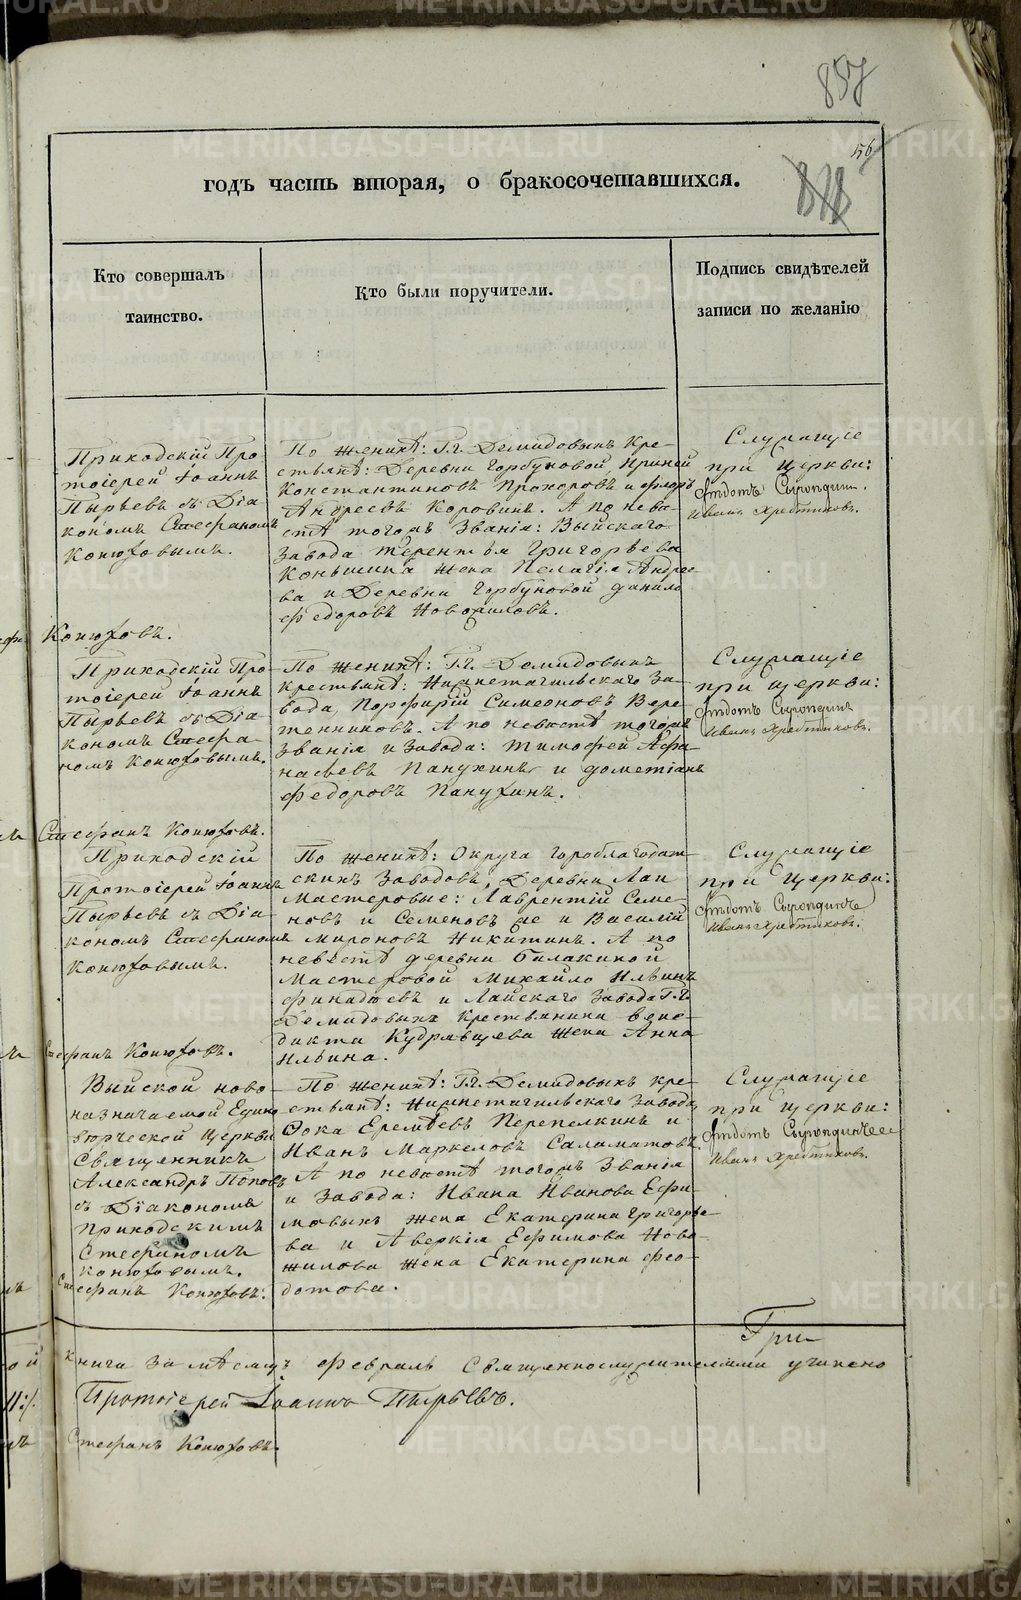 METRIKI.GASO-URAL.RU
857
56
годъ часть вторая, о бракосочетавшихся.
818
Кто совершалъ
таинство.
Кто были поручители.
Подпись свидѣтелей
записи по желанію
Приходскій Про
тоіерей Іоаннъ
Пырьевъ съ Діа
кономъ Стефаномъ
Конюховымъ.
По женихѣ: Г.г. Демидовыхъ кре-
стьянѣ: Деревни Горбуновой, Ириней
Константиновъ Прохоровъ и Флоръ
Андреевъ Коровинъ. А по неве-
стѣ тогожъ званія: Выйскаго
завода Терентья Григорьева
Коньшина жена Пелагія Андрее-
ва и Деревни Горбуновой Данило
Федоровъ Новожиловъ.
Служащіе
при церкви:
Иванъ Хребтиковъ.
Конюховъ.
Приходскій Про-
тоіерей Іоаннъ
Пырьевъ съ Діа-
кономъ Стефа-
номъ Конюховымъ.
По женихѣ: Г.г. Демидовыхъ
крестьянѣ: Нижнетагильскаго за-
вода, Порфирій Симеоновъ Вере-
тенниковъ. А по невестѣ тогожъ
званія и завода: Тимофей Афа-
насьевъ Панухинъ и Дометіанъ
Федоровъ Панухинъ.
Служащіе
при церкви:
Иванъ Хребтиковъ.
Стефанъ Конюховъ.
Приходскій
Протоіерей Іоаннъ
Пырьевъ съ Діа-
кономъ Стефаномъ
Конюховымъ.
По женихѣ: Округа Гороблагодат-
скихъ заводовъ, Деревни Лаи
Мастеровые: Лаврентій Семе-
новъ и Семеновъ же и Василій
Мироновъ Никитинъ. А по
невѣстѣ деревни Балакиной
Мастеровой Михайло Ильинъ
и Лайскаго завода Г.г.
Демидовыхъ крестьянина Вене-
дикта Кудрявцева жена Анна
Ильина.
Служащіе
при Церкви:
Иванъ Хребтиковъ.
Стефанъ Конюховъ.
Выйской ново-
назначаемой Едино
вѣрческой церкви
Священникъ
Александръ Поповъ
съ Діакономъ
приходскимъ
Стефаномъ
Конюховымъ.
По женихѣ: Г.г. Демидовыхъ кре-
стьянѣ: Нижнетагильскаго завода,
Фока Еремѣевъ Перепелкинъ и
Иванъ Маркеловъ Саламатовъ.
А по невестѣ тогожъ званія
и завода: Ивана Иванова Ефи-
мовыхъ жена Екатерина Григорье-
ва и Аверкія Ефимова Ново-
жилова жена Екатерина Фео-
дотова.
Служащіе
при церкви:
Иванъ Хребтиковъ.
Стефанъ Конюховъ.
При
книга за мѣсяцъ февраль Священнослужителями учинено
Протоіерей Іоаннъ Пырьевъ.
Стефанъ Конюховъ.